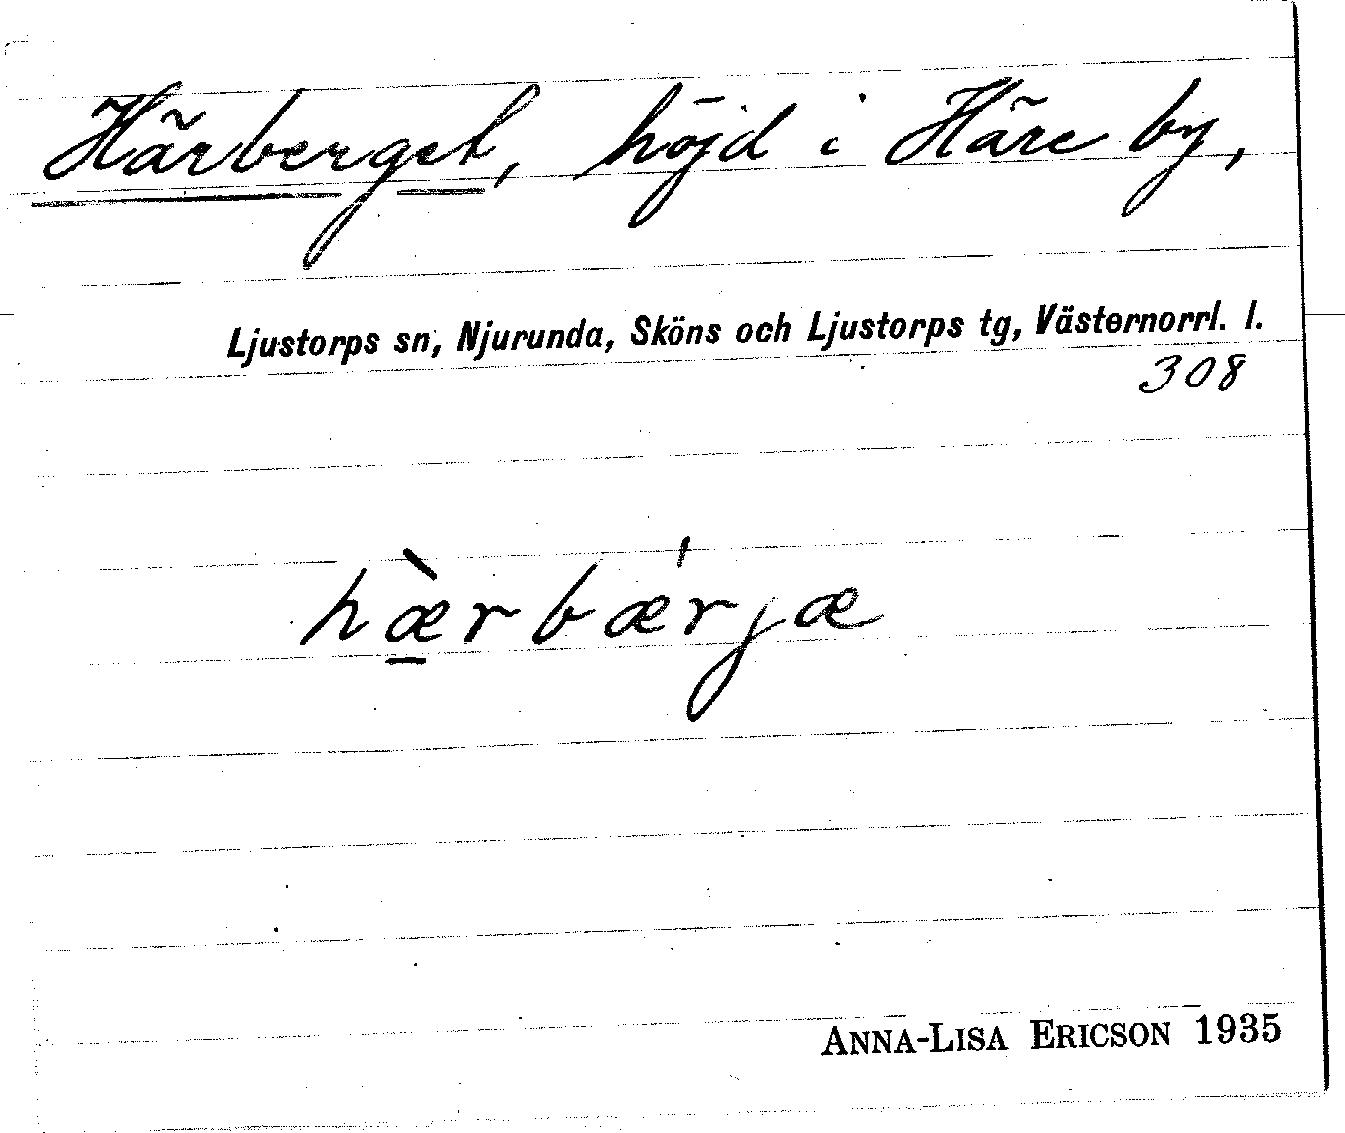 Härberget, höjd i Häre by,
Ljustorps sn, Njurunda, Sköns och Ljustorps tg, Västernorrl. l.
308
hæ̀rbæ'rjæ
ANNA-LISA ERICSON 1935